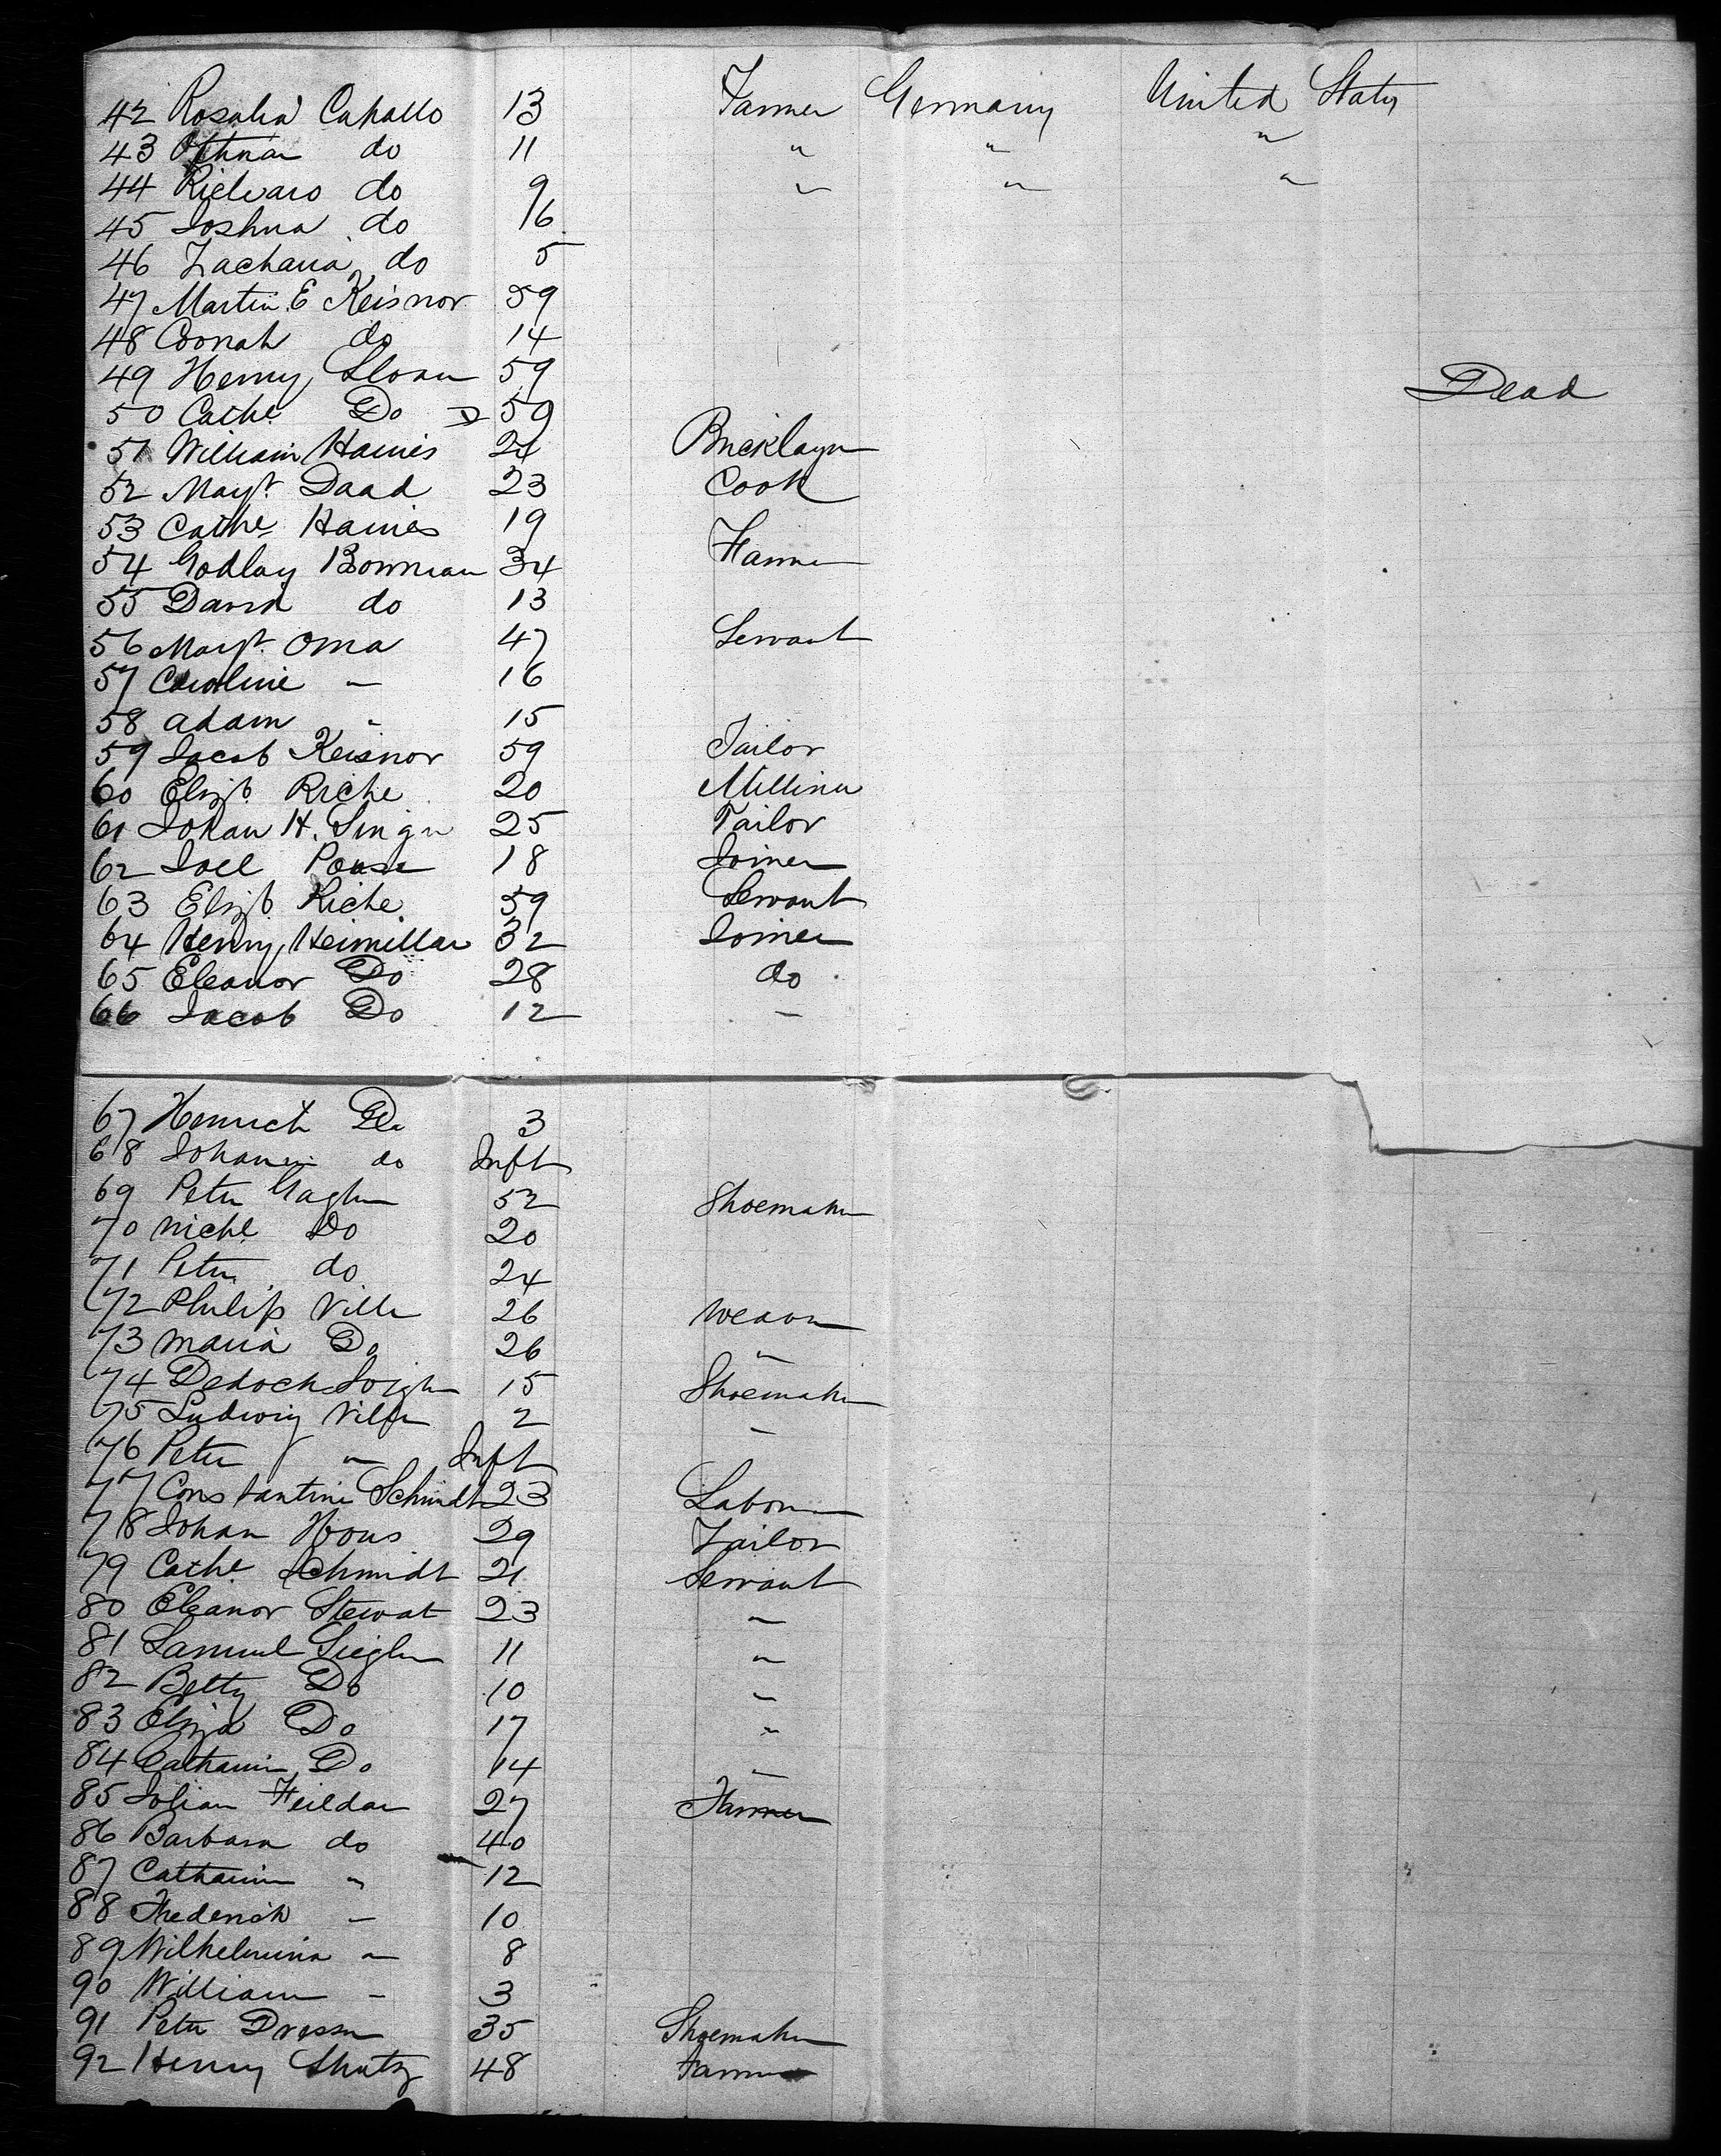 42 Rosalia Caballo 13 Farmer Germany United States
43 Othnar do 11 " " "
44 Richard do 9 " " "
45 Joshua do 16
46 Zacharia do 5
47 Martin E Keisnor 59
48 Conrah do 14
49 Henry Sloan 59
50 Cathe Do 59 Dead
51 William Haines 24 Bricklayer
52 Magt. Daad 23 Cook
53 Cathe Haines 19
54 Godlay Bowman 34 Farmer
55 David do 13
56 Magt. Oma 47 Servant
57 Caroline " 16
58 Adam " 15
59 Jacob Keisnor 59 Tailor
60 Elizb. Riche 20 Milliner
61 Johan H. Singer 25 Tailor
62 Joel Pouse 18 Joiner
63 Elizb. Riche 59 Servant
64 Henry Heimillar 32 Joiner
65 Eleanor Do 28 do
66 Jacob Do 12 "
67 Henrich Do 3
68 Johann do Inft
69 Peter Gagher 52 Shoemaker
70 Michl Do 20
71 Peter do 24
72 Philip Viller 26 Weaver
73 Maria Do 26 "
74 15 Shoemaker
75 Ludwig 2 "
76 Peter " Inft
77 Constantine Schmidt 23 Laborer
78 Johan Hous 29 Tailor
79 Cathe Schmidt 21 Servant
80 Eleanor Stewat 23 "
81 Samuel Siegler 11 "
82 Betty Do 10 "
83 Eliza Do 17 "
84 Catharine Do 14 "
85 Johan Feildar 27 Farmer
86 Barbara do 40
87 Catharine " 12
88 Frederick " 10
89 Wilhelmina " 8
90 William " 3
91 Peter Dresser 35 Shoemaker
92 Henry Shutz 48 Farmer